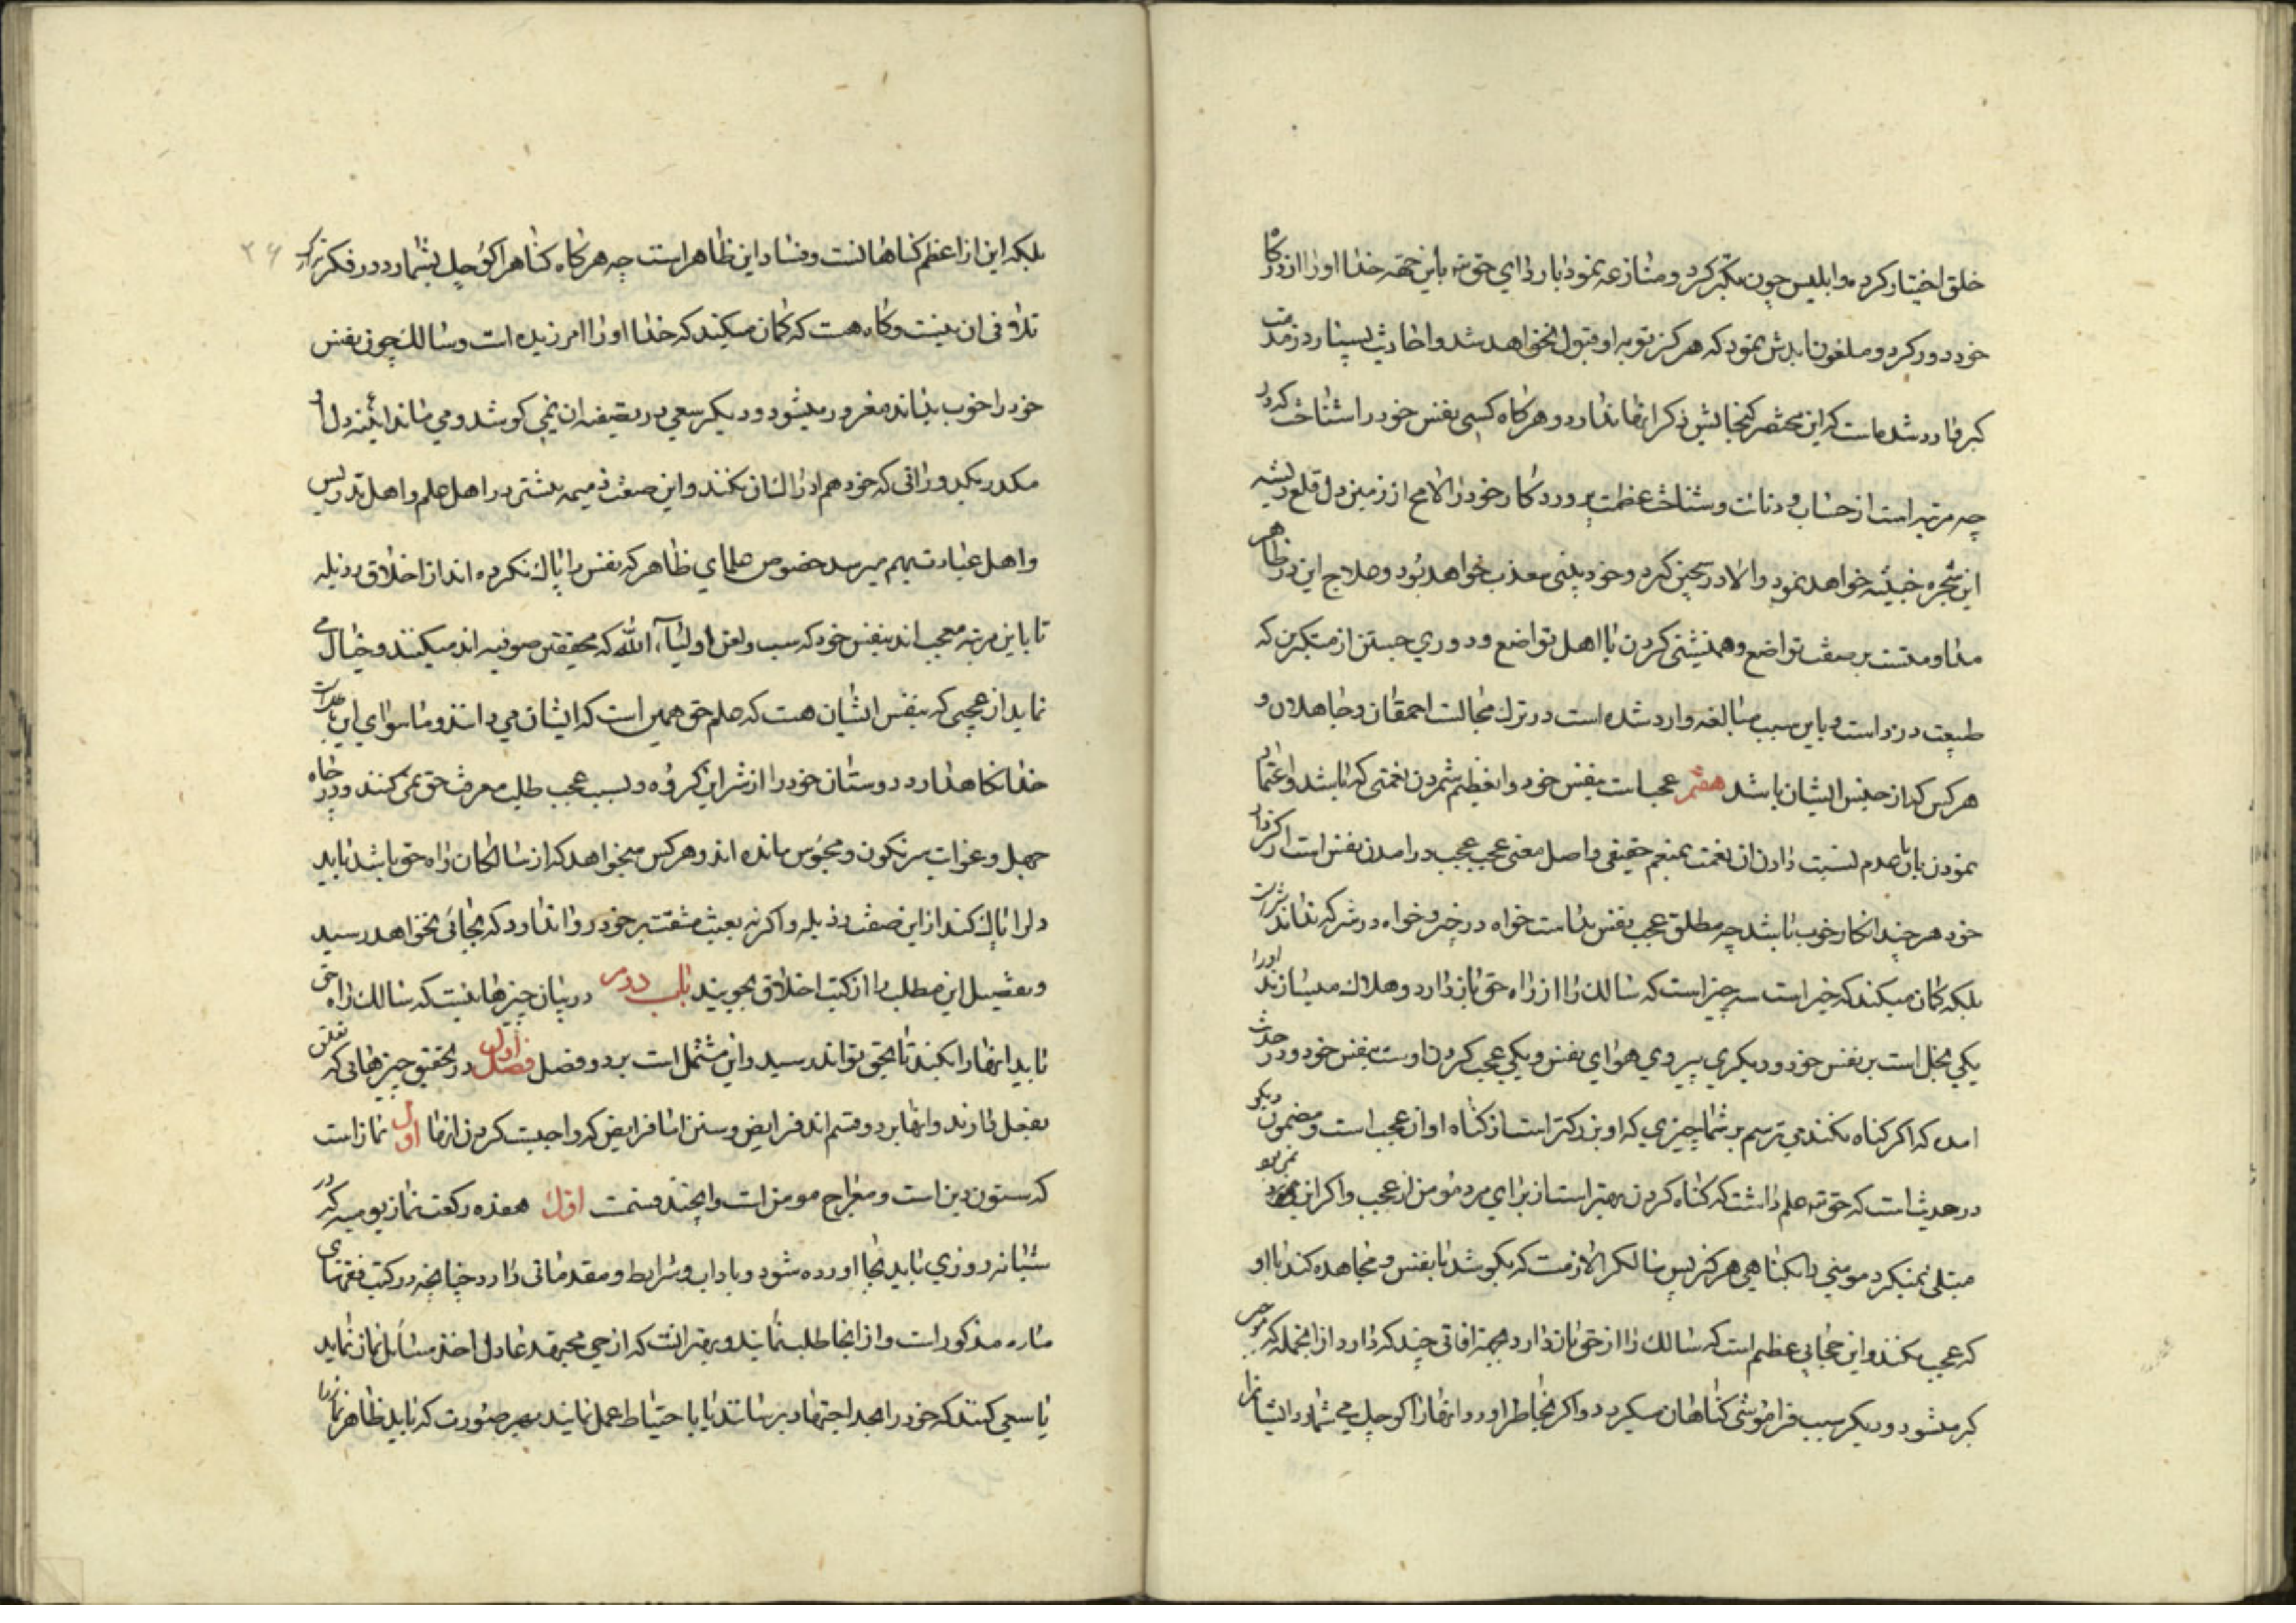 خلق اختیار کرد و ابلیس چون تکبر کرد و منازعه نمود با ردای حق تع باین جهة خدا او را از درکاه
خود دور کرد و ملعون ابدش نمود که هرکز توبه او قبول نخواهد شد و احادیث بسیار در مذمت
کبر وارد شده است که این مختصر کنجایش ذکر انها ندارد و هرکاه کسی نفس خود را شناخت که در
چه مرتبه است از خساست و دنائت و شناخت عظمت پروردکار خود را لامح از زمین دل قلع ریشه
این شجره خبیثه خواهد نمود والا در سجین کبر و خود بینی معذب خواهد بود و علاج این در ظاهر
مداومتست بر صفت تواضع و همنشینی کردن با اهل تواضع و دوری جستن از متکبرین که
طبیعت دزد است و باین سبب مبالغه وارد شده است در ترک مجالست احمقان و جاهلان و
هر کس که از جنس ایشان باشد هفتم عجب است بنفس خود و ان عظیم شمردن نعمتی که باشد و اعتماد
نمودن بان با عدم نسبت دادن ان نعمت بمنعم حقیقی و اصل معنی عجب عجب درامدن نفس است از کردار
خود هر چند انکار خوب باشد چه مطلق عجب بنفس بد است خواه در خیر و خواه در شر که نداند شر است
بلکه کمان میکند که خیر است سه چیز است که سالک را از راه حق باز دارد و هلاک میسازند او را
یکی بخل است بر نفس خود و دیکری پیروی هوای نفس و یکی عجب کردن اوست بنفس خود و در حدیث
امده که اکر کناه نکنند می ترسم بر شما چیزی که او بزرکتر است از کناه او ان عجب است و مضمون دیکر
در حدیث است که حق تع علم داشت که کناه کردن بهتر است از برای مرد مومن از عجب و اکر این نمی بود
مبتلی نمیکرد مومنی را بکناهی هرکز پس سالک را لازمست که بکوشد با نفس و مجاهده کند با او
که عجب نکند و این حجابی عظیم است که سالک را از حق باز دارد بجهة افاتی چند که دارد از انجمله که موجب
کبر میشود و دیکر سبب فراموشی کناهان میکردد و اکر بخاطر اورد انها را کوچک می شمارد ایشانرا
بلکه این از اعظم کناهانست و فساد این ظاهر است چه هرکاه کناه را کوچک بشمارد در فکر تدارک
تلافی ان نیست و کاه هست که کمان میکند که خدا او را امرزیده است و سالک چون نفس
خود را خوب بداند مغرور میشود و دیکر سعی در تصفیه ان نمی کوشد و می ماند ائینه دل او
مکدر بکدوراتی که خود هم ادراک ان نکند و این صفت ذمیمه بیشتر در اهل علم و اهل تدریس
و اهل عبادت بهم میرسد خصوص علمای ظاهر که نفس را پاک نکرده اند از اخلاق رذیله
تا باین مرتبه معجب اند بنفس خود که سب و لعن اولیاء الله که محققین صوفیه اند میکنند و خیال می
نماید از عجبی که بنفس ایشان هست که علم حق همین است که ایشان می دانند و ماسوای این باطل است
خدا نکاه دارد دوستان خود را از شر این کروه و بسبب عجب طلب معرفت حق نمی کنند و در چاه
جهل و غوایت سرنکون و محبوس مانده اند و هر کس میخواهد که از سالکان راه حق باشد باید
دل را پاک کند از این صفت رذیله و اکر نه بعبث مشقت بر خود روا ندارد که بجائی نخواهد رسید
و تفصیل این مطلب را از کتب اخلاق بجویند باب دوم در بیان چیزهائیست که سالک راه حق
باید انها را بکند تا بحق تواند رسید و این مشتمل است بر دو فصل فصل اول در تحقیق چیزهائی که تعلق
بفعل دارند و انها بر دو قسم اند فرایض و سنن اما فرایض که واجبست کردن انها اول نماز است
که ستون دین است و معراج مومن است و ان چند قسمست اول هفده رکعت نماز یومیه که در
شبانه روزی باید بجا اورده شود و با داب و شرایط و مقدماتی دارد چنانچه در کتب فقهای
ما ره مذکور است و از انجا طلب نمایند و بهتر انست که از حی مجتهد عادل اخذ مسائل نماز نماید
یا سعی کنند که خود را بحد اجتهاد برسانند یا با احتیاط عمل نمایند بهر صورت که باید ظاهر نماز را